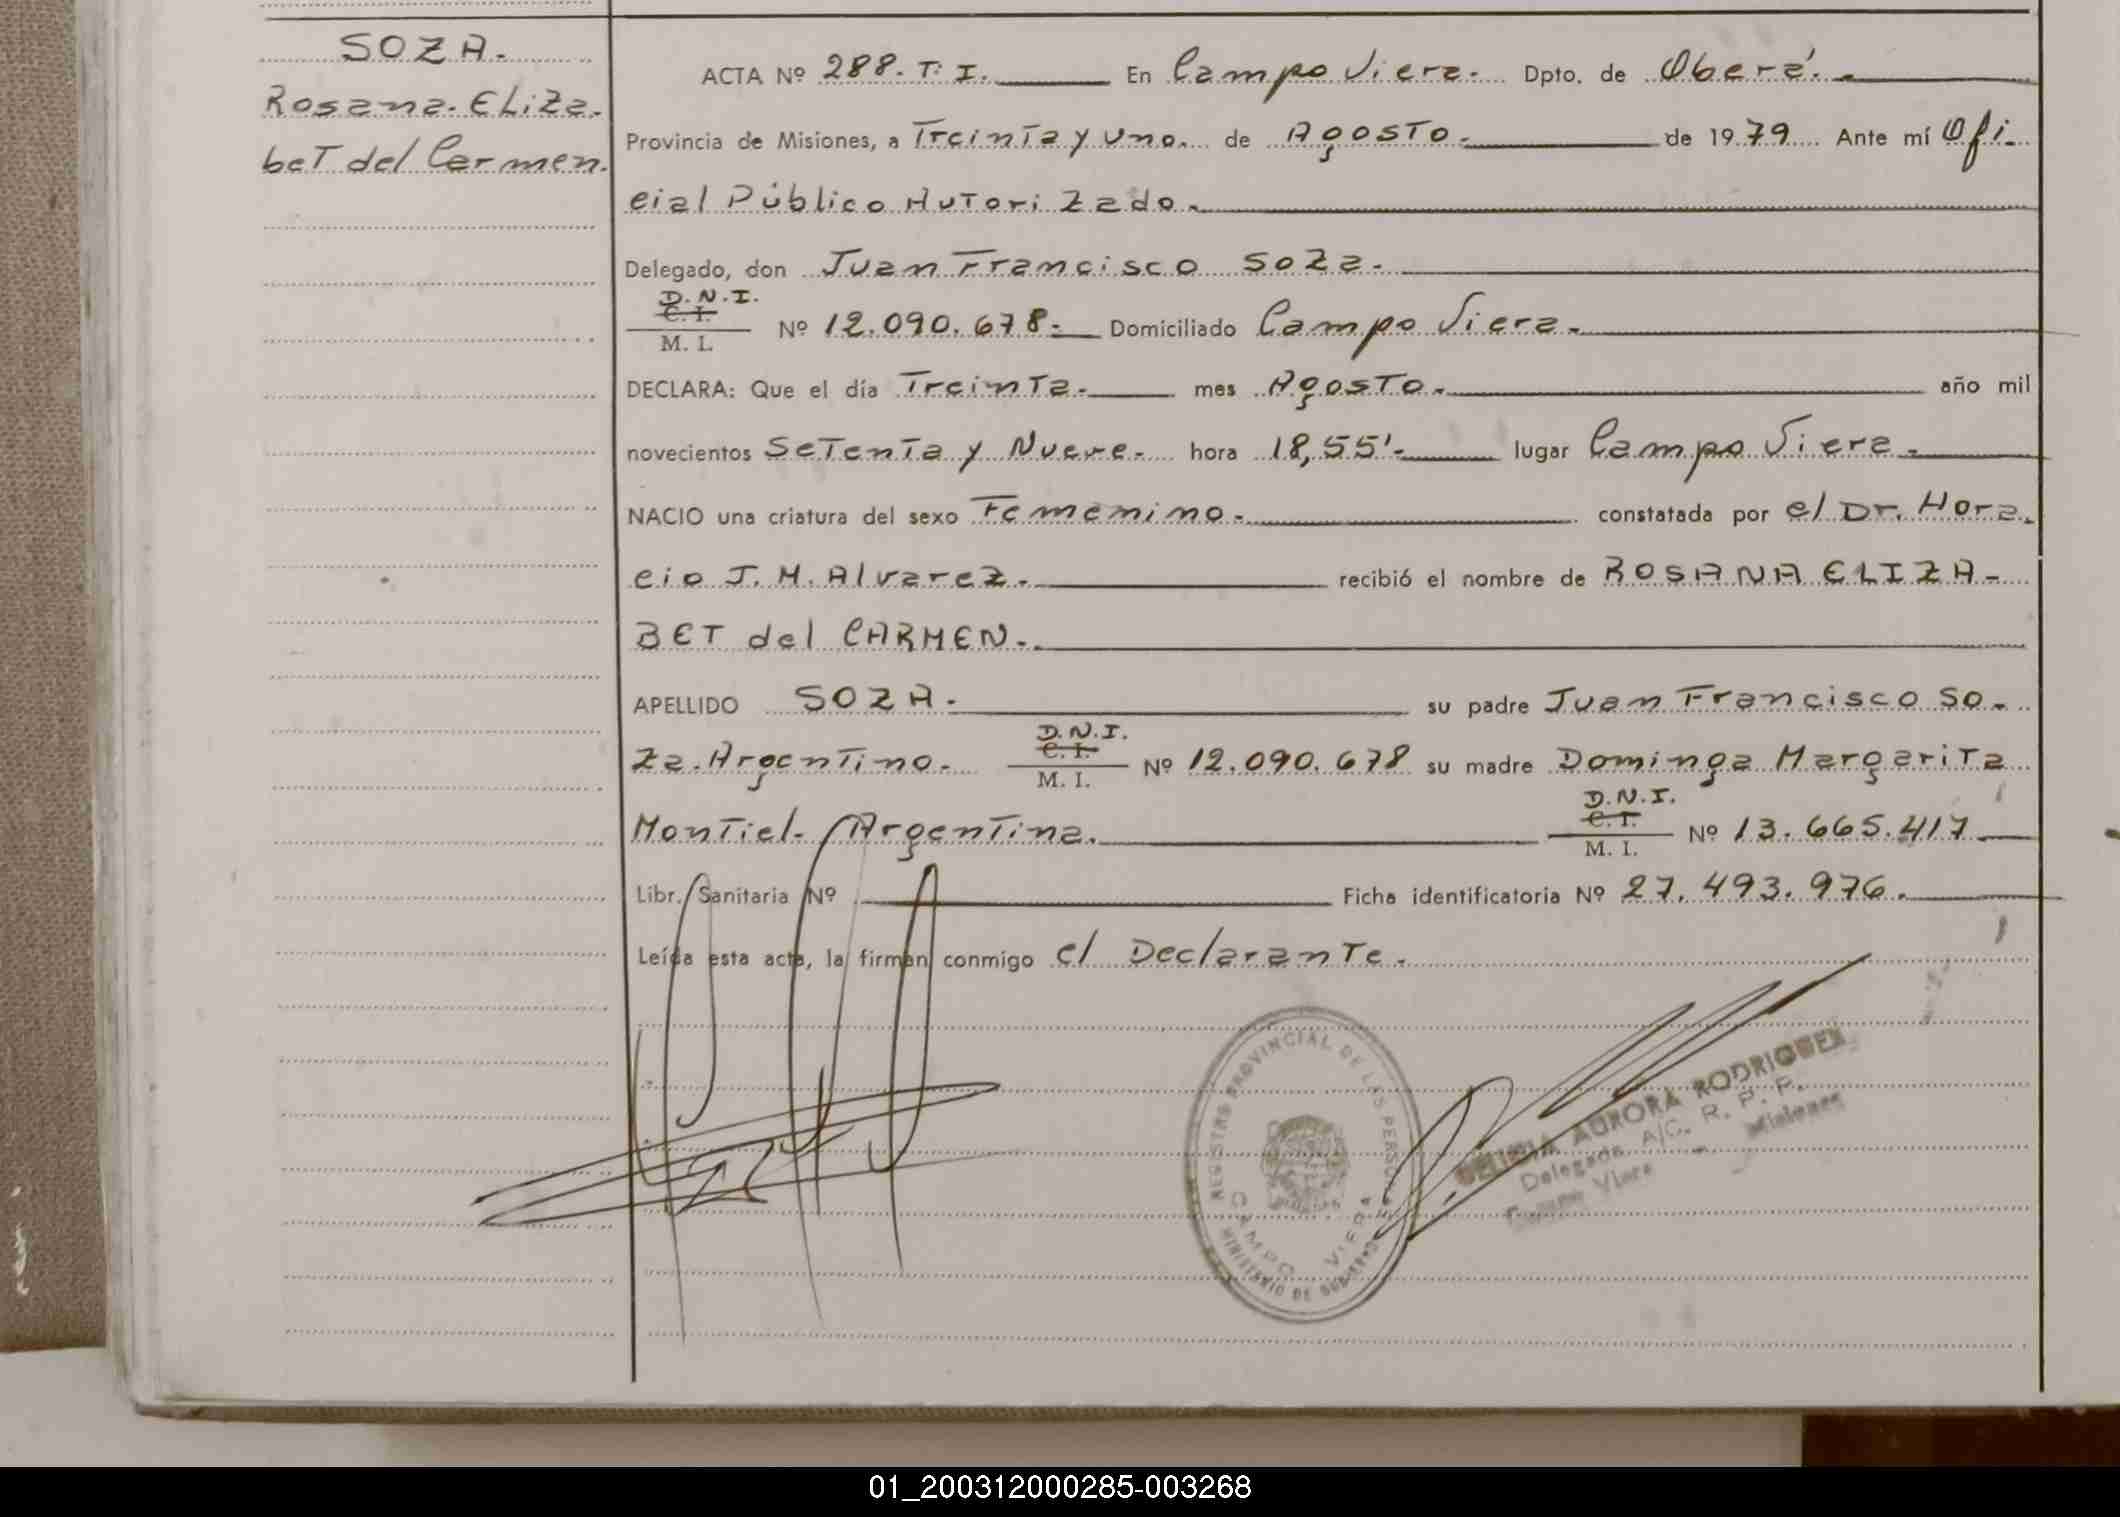 SOZA.
Rosana. Eliza.
bet del Carmen.
ACTA Nº 288. T. I. En Campo Viera. Dpto. de Oberá.
Provincia de Misiones, a Treinta y Uno. de Agosto. de 1979 Ante mí Ofi.
cial Público Autorizado.
Delegado, don Juan Francisco Soza.
D.N.I.
C. I.
M. I.
Nº 12.090.678. Domiciliado Campo Viera.
DECLARA: Que el día Treinta. mes Agosto. año mil
novecientos Setenta y Nueve. hora 18,55'. lugar Campo Viera.
NACIO una criatura del sexo Femenino. constatada por el Dr. Hora.
cio J. M. Alvarez. recibió el nombre de ROSANA ELIZA-
BET del CARMEN.
APELLIDO SOZA. su padre Juan Francisco So.
za. Argentino.
D.N.I.
C. I.
M. I.
Nº 12.090.678 su madre Dominga Margarita
Montiel. Argentina.
D.N.I.
C. I.
M. I.
Nº 13.665.417
Libr. Sanitaria Nº Ficha identificatoria Nº 27.493.976.
Leída esta acta, la firman conmigo el Declarante.
REGISTRO PROVINCIAL DE LAS PERSONAS
CAMPO VIERA
MINISTERIO DE GOBIERNO
AURORA RODRIGUEZ
Delegada A/C. R. P. P.
Campo Viera Misiones
01_200312000285-003268